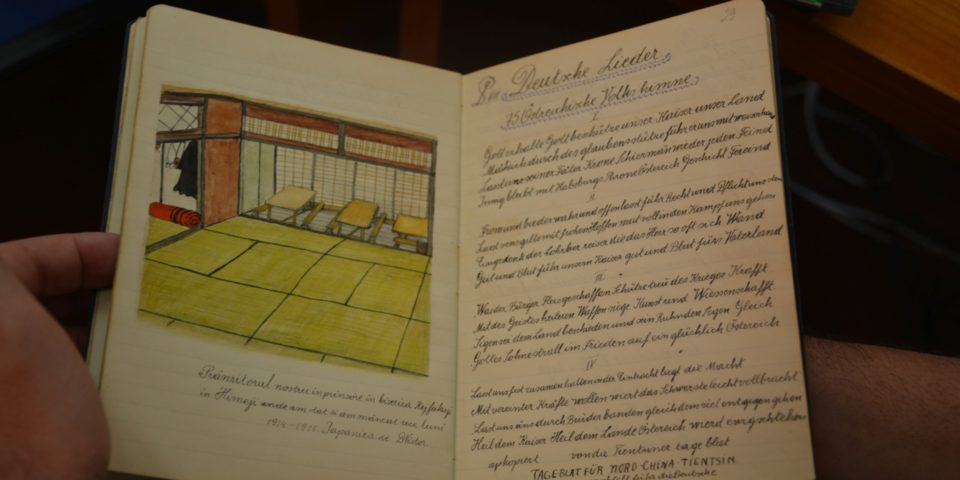 Prânzitorul nostru in prinsore in biserica
in Himeji unde am dat si am mâncat
1914-1915. Japania de
29
Deutsche Lieder
75 Östreichische Volks himne
I
Gott erhalte Gott beschütze unser Kaiser unser Land
Mächtich durch des glaubens stütze führ er uns mit
Last uns seiner Fäter Krone Schiermän wieder jeden Feind
Innig bleibt mit Habsburgs Trone Östereich Geschickt
II
From und bieder wahr und offen last für Recht und Pflicht uns
Last wens gilt mit frohen Hoffen mut voll in den Kampf uns gehen
Eingedenk der Lohrber reiser die das Her so oft sich Wand
Gut und Blut führ unsern Kaiser gut und Blut fürs Vaterland
III
Was der Bürger Fleis geschaffen Schütze treu des Krieges Krafft
Mit des Geistes heiteren Waffen sige Kunst und Wiessenschafft
Segen sei dem Land beschieden und sein Ruhm den Segen Gleich
Gottes Sohne strall im Frieden auf ein glücklich Östereich
IV
Last uns fest zusamen halten in der Eintracht ligt die Macht
Mit vereinter Kräfte wallen wird das Schwerste leicht vollbracht
Last uns äins durch Brüder banden gleich dem ziel entgegen gehen
Heil dem Kaiser Heil dem Lande Östereich wierd ewig stehen
apkopiert von die Tientsiner tage blat
TAGEBLAT FÜR NORD-CHINA-TIENTSIN